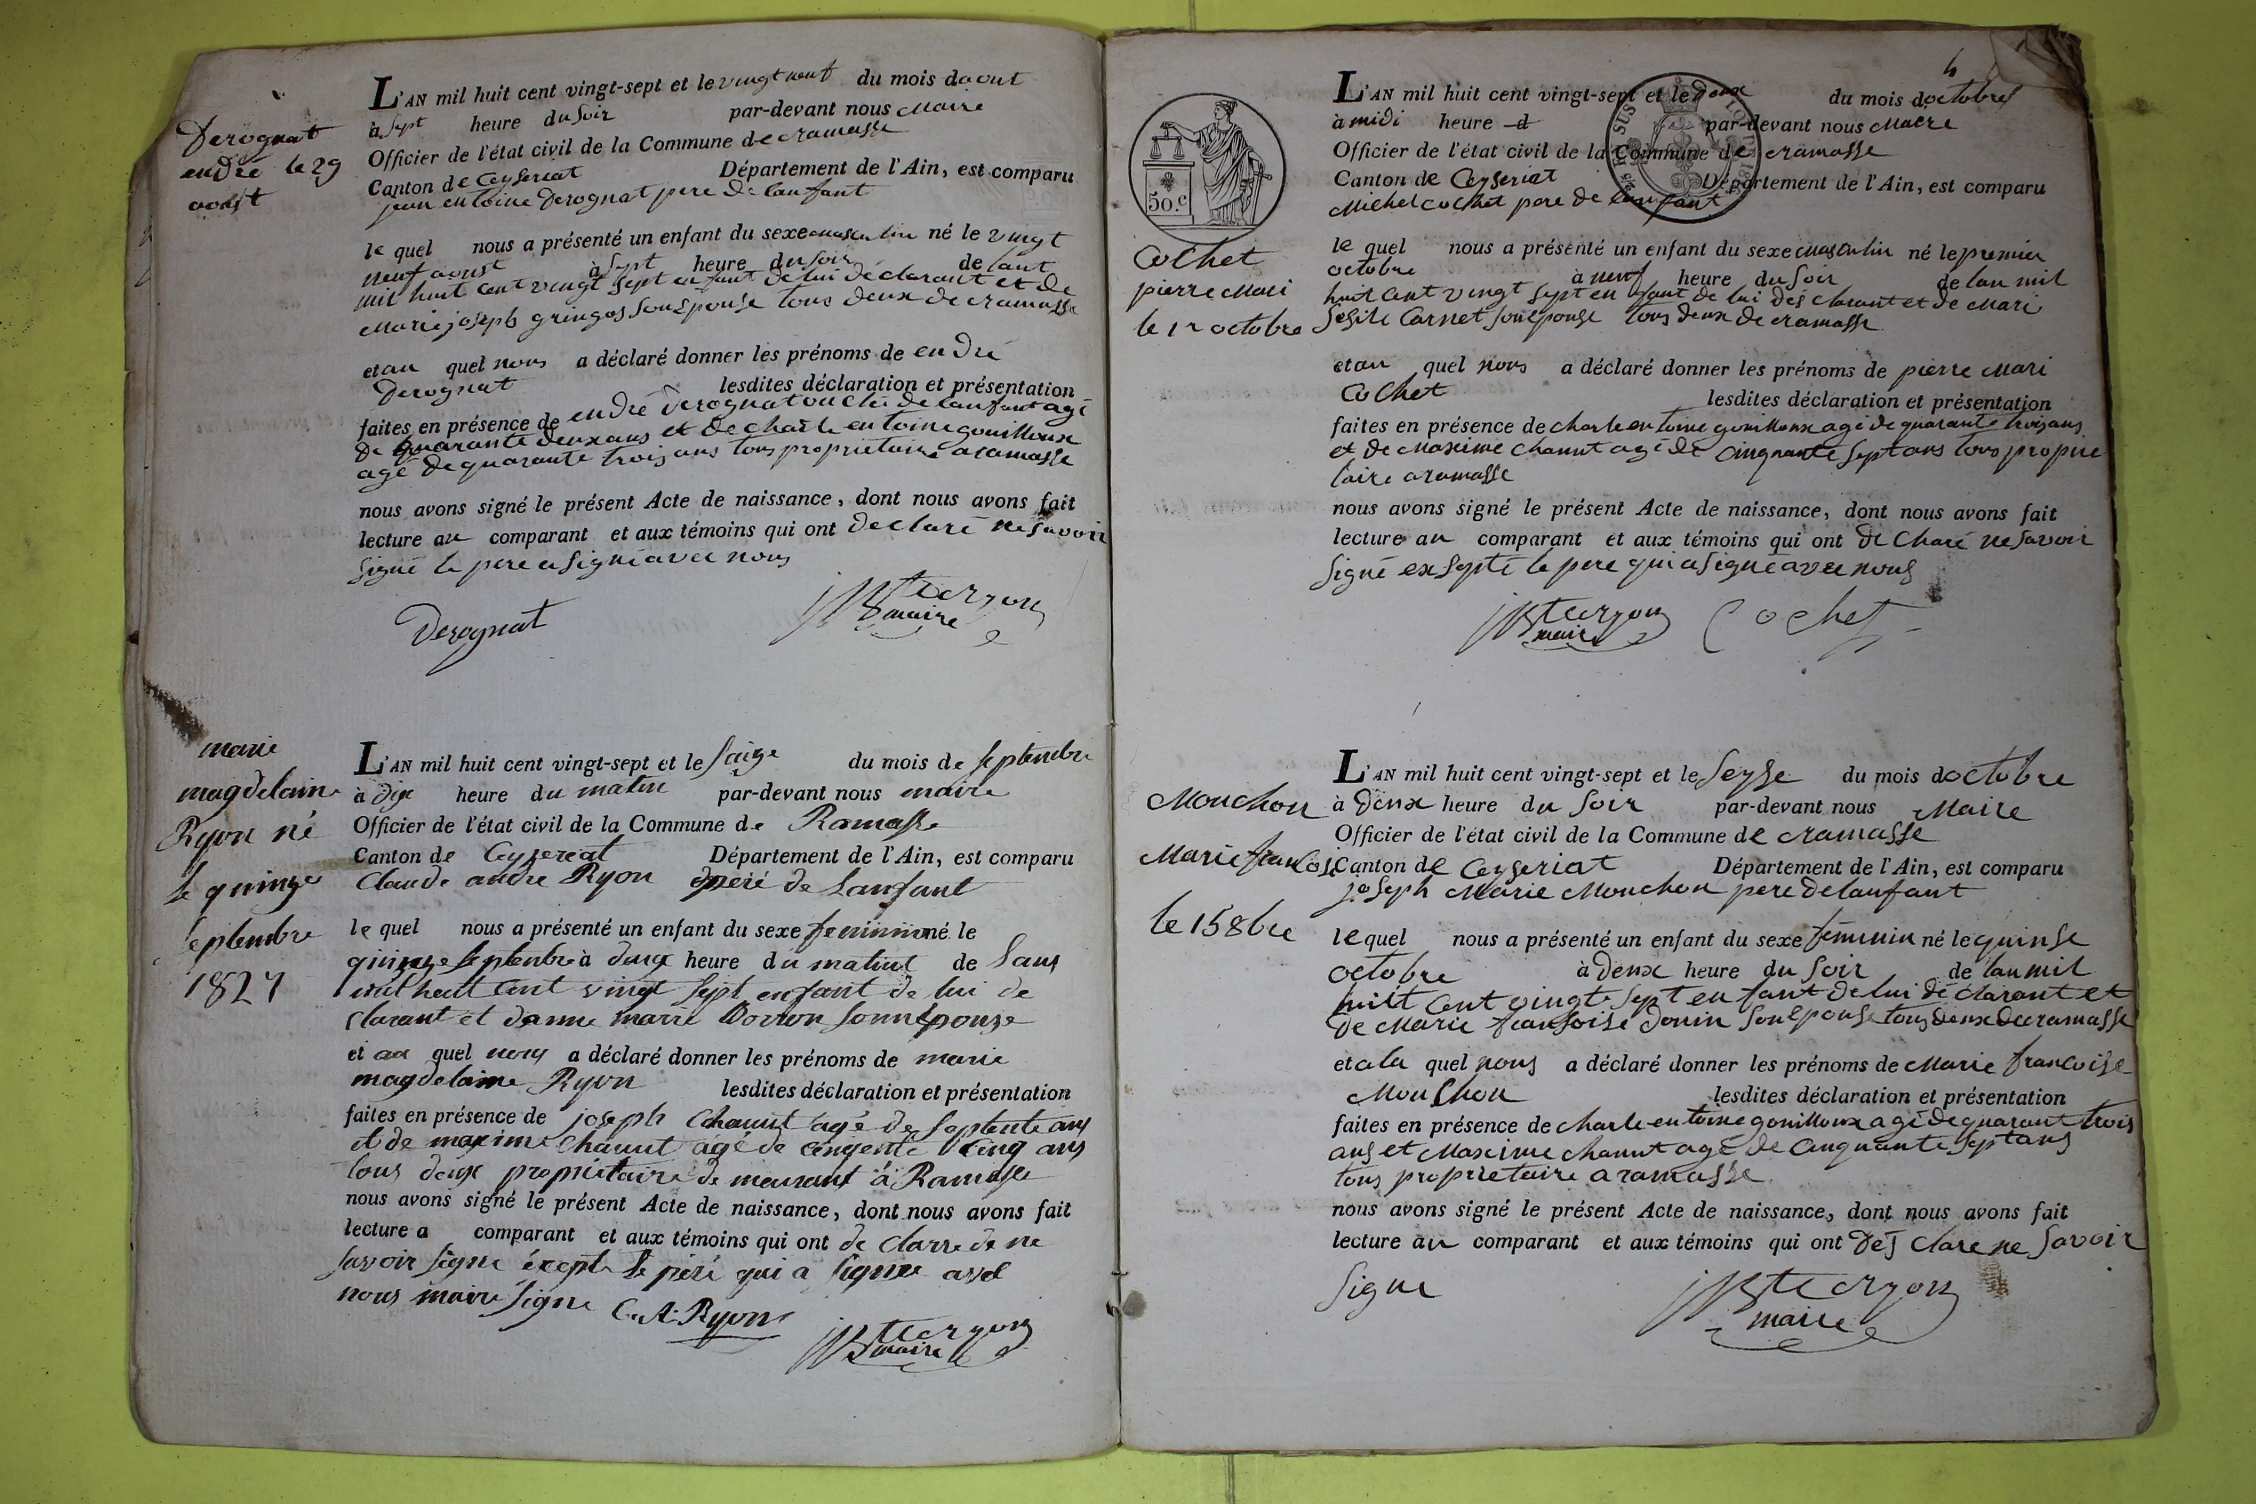 Derognat
endré le 29
aoust
L'AN mil huit cent vingt-sept et le vingt neuf du mois daout
à sept heure du soir par-devant nous Maire
Officier de l'état civil de la Commune de cramasse
Canton de Ceyseriat Département de l'Ain, est comparu
jean entoine Derognat pere de lanfant
le quel nous a présenté un enfant du sexe masculin né le vingt
neuf aoust à sept heure du soir de lant
mil huit cent vingt sept enfant de lui déclarant et de
Marie joseph gringos sonépouse tous deux de cramasse
et au quel nous a déclaré donner les prénoms de endré
Derognat lesdites déclaration et présentation
faites en présence de endré Derognat oncle de lanfant agé
de quarante deux ans et de charle entoine gouilloux
agé de quarante trois ans tous proprietaire a ramasse
nous avons signé le présent Acte de naissance, dont nous avons fait
lecture au comparant et aux témoins qui ont declaré ne savoir
signé le pere a signé avec nous
Derognat
maire
marie
magdelaine
Ryon né
le quinze
septembre
1827
L'AN mil huit cent vingt-sept et le saize du mois de septembre
à dix heure du matin par-devant nous maire
Officier de l'état civil de la Commune de Ramasse
Canton de Ceyzereat Département de l'Ain, est comparu
Claude andre Ryon peré de Lanfant
le quel nous a présenté un enfant du sexe feminin né le
quinze septembre à deux heure du matin de Lans
mil huit cent vingt sept enfant de lui de
clarant et danne marre Dorron sonnepouze
et au quel nous a déclaré donner les prénoms de marie
magdelaine Ryon lesdites déclaration et présentation
faites en présence de joseph Chanut agé de septente ans
et de maxime Chanut agé de cinqente cinq ans
tous deux proprietaire de meurant à Ramasse
nous avons signé le présent Acte de naissance, dont nous avons fait
lecture a comparant et aux témoins qui ont de clarre de ne
savoir signe éxcepte le peré qui a signée avel
nous maire signe C. A. Ryon
maire
4
50.c
Cochet
pierre Mari
le 1r octobre
L'AN mil huit cent vingt-sept et le deux du mois doctobre
à midi heure d par-devant nous Maere
Officier de l'état civil de la Commune de cramasse
Canton de Ceyseriat Département de l'Ain, est comparu
Michel cochet pere de lanfant
le quel nous a présenté un enfant du sexe masculin né le premier
octobre à neuf heure du soir de lan mil
huit cent vingt sept enfant de lui des clarant et de Mari
Sesile Carnet sonéponse tous deux de cramasse
et au quel nous a déclaré donner les prénoms de pierre Mari
Cochet lesdites déclaration et présentation
faites en présence de charle entoine gouilloux agé de quarante trois ans
et de Maxime chanut agé de cinquante sept ans tous proprie
taire a ramasse
nous avons signé le présent Acte de naissance, dont nous avons fait
lecture au comparant et aux témoins qui ont de charé ne savoir
signé exsepté le pere qui a signé avec nous
maire Cochet
Mouchon
Marie francoise
le 15 8bre
L'AN mil huit cent vingt-sept et le seyse du mois doctobre
à deux heure du soir par-devant nous Maire
Officier de l'état civil de la Commune de cramasse
Canton de Ceyseriat Département de l'Ain, est comparu
joseph Marie Mouchon pere de lanfant
le quel nous a présenté un enfant du sexe feminin né le quinse
octobre à deux heure du soir de lan mil
huit cent vingt sept enfant de lui dé clarant et
de Marie fransoise donin sonéponse tous deux de cramasse
et a la quel nous a déclaré donner les prénoms de Marie francoise
Mouchon lesdites déclaration et présentation
faites en présence de charle entoine gouilloux agé de quarant trois
ans et Maxime chanut agé de cinquante sept ans
tous proprietaire a ramasse
nous avons signé le présent Acte de naissance, dont nous avons fait
lecture au comparant et aux témoins qui ont des clare ne savoir
signe
maire